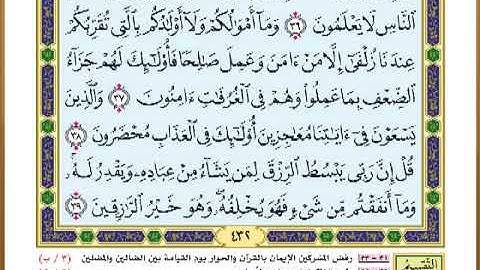 ٱلنَّاسِ لَا يَعْلَمُونَ ٣٦ وَمَآ أَمْوَٰلُكُمْ وَلَآ أَوْلَٰدُكُم بِٱلَّتِى تُقَرِّبُكُمْ
عِندَنَا زُلْفَىٰٓ إِلَّا مَنْ ءَامَنَ وَعَمِلَ صَٰلِحًا فَأُو۟لَٰٓئِكَ لَهُمْ جَزَآءُ
ٱلضِّعْفِ بِمَا عَمِلُوا۟ وَهُمْ فِى ٱلْغُرُفَٰتِ ءَامِنُونَ ٣٧ وَٱلَّذِينَ
يَسْعَوْنَ فِىٓ ءَايَٰتِنَا مُعَٰجِزِينَ أُو۟لَٰٓئِكَ فِى ٱلْعَذَابِ مُحْضَرُونَ ٣٨
قُلْ إِنَّ رَبِّى يَبْسُطُ ٱلرِّزْقَ لِمَن يَشَآءُ مِنْ عِبَادِهِۦ وَيَقْدِرُ لَهُۥ ۚ
وَمَآ أَنفَقْتُم مِّن شَىْءٍ فَهُوَ يُخْلِفُهُۥ ۖ وَهُوَ خَيْرُ ٱلرَّٰزِقِينَ ٣٩
٤٣٢
التقسيم
٣١ - ٣٣ رفض المشركين الإيمان بالقرآن والحوار يوم القيامة بين الضالين والمضلين (٣ / ب)